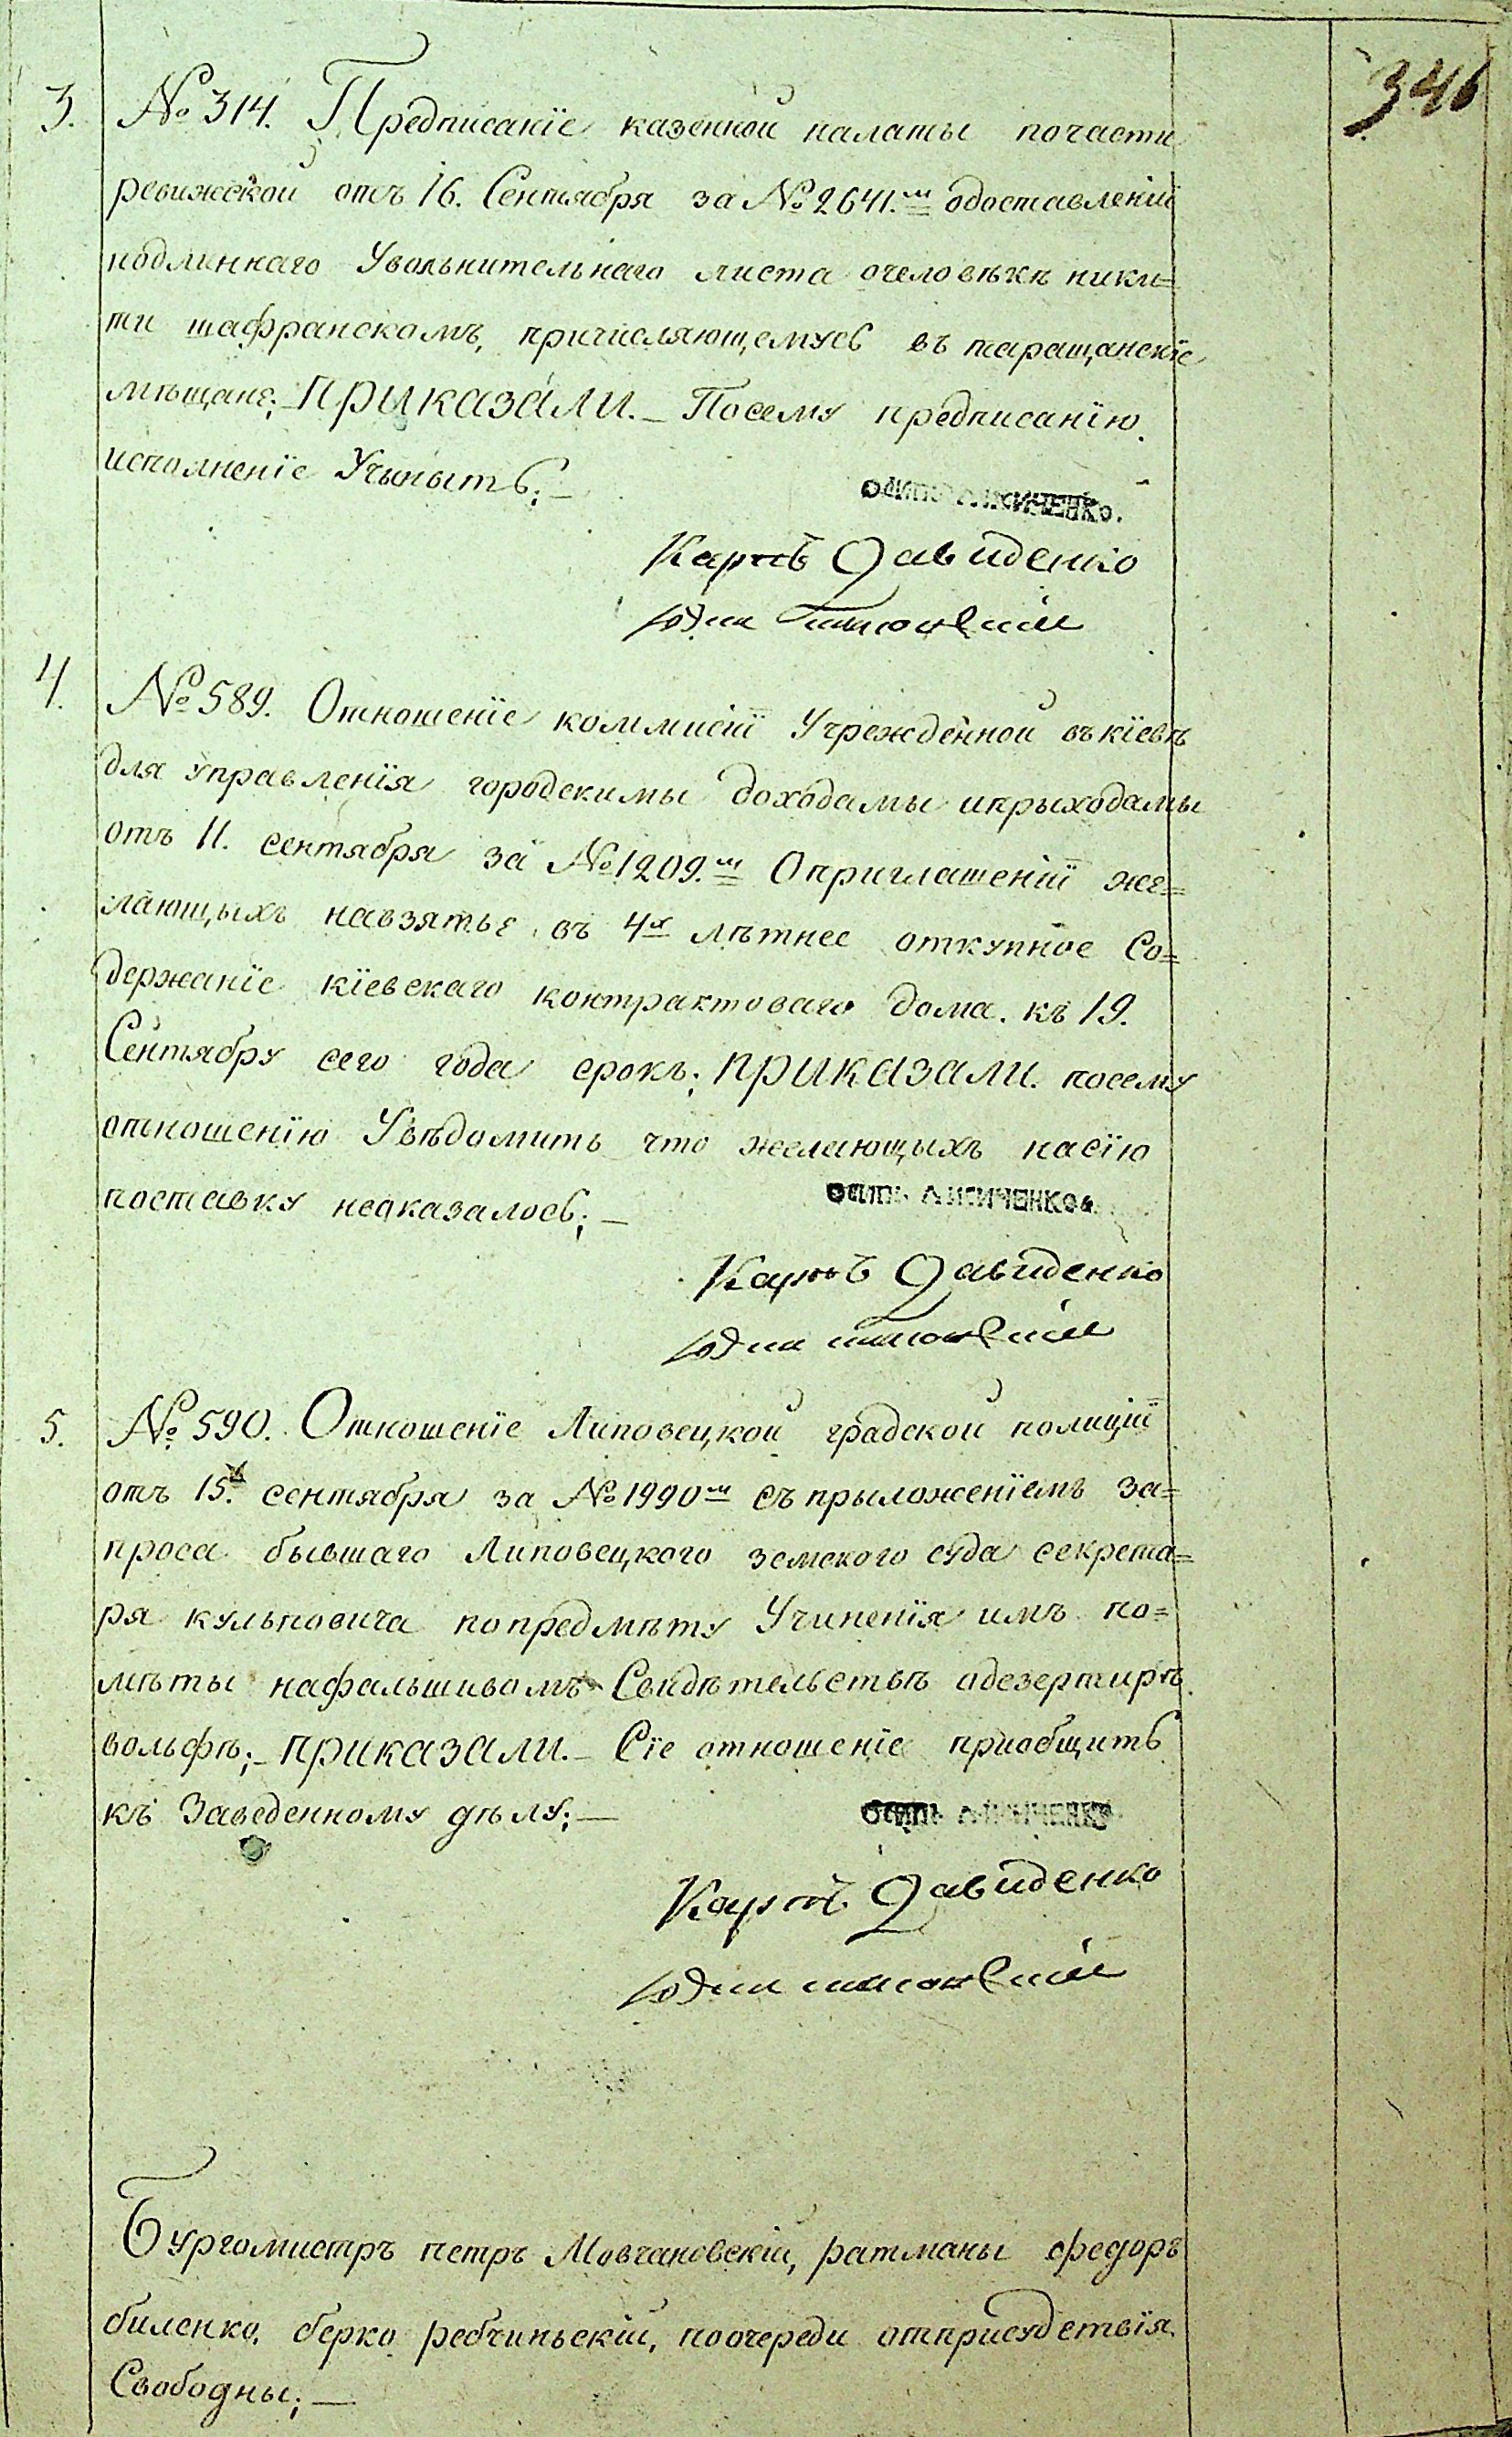 346
3. № 314. Предписанїе казенной палаты почасти
ревижской отъ 16. Сентября за № 2641.м одоставленїи
подлиннаго Увольнительнаго листа очеловѣкѣ ники=
ти шафранскомъ, причисляющемусь въ таращанскїе
мѣщане; ПРИКАЗАЛИ. Посему предписанїю
исполненїе Учыныть;
Осипъ Лисиченко.
Карпъ Давиденко
4. № 589. Отношенїе коммисїи Учрежденной въ кїевѣ
для Управленїя городскимы доходамы ипрыходамы
отъ 11. сентября за № 1209.м Оприглашенїи же=
лающыхъ навзятье въ 4х лѣтнее откупное Со=
держанїе кїевскаго контрактоваго дома. къ 19.
Сентябру сего года срокъ; ПРИКАЗАЛИ. посему
отношенїю Увѣдомить что желающыхъ насїю
поставку неоказалось;
Осипъ Лисиченко.
Карпъ Давиденко
5. № 590. Отношенїе Липовецкой градской полицїи
отъ 15. сентября за № 1990м съ прыложенїемъ за=
проса бывшаго Липовецкого земского суда секрета=
ря кульповича попредмѣту Учиненїя имъ по=
мѣты нафальшивомъ Свидѣтельствѣ одезертирѣ
вольфѣ; ПРИКАЗАЛИ. Сїе отношенїе приобщить
къ Заведенному дѣлу;
Осипъ Лисиченко
Карпъ Давиденко
Бургомистръ петръ Мовчановскїй, ратманы федоръ
биленко, берко ребчиньскїй, поочереди отприсудствїя
Свободны;